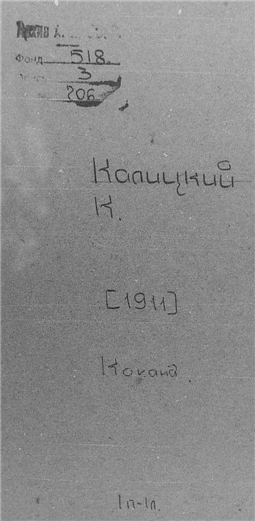 Фонд 518.
3
706
Калицкий
К.
[1911]
Коканд
1п-1л.